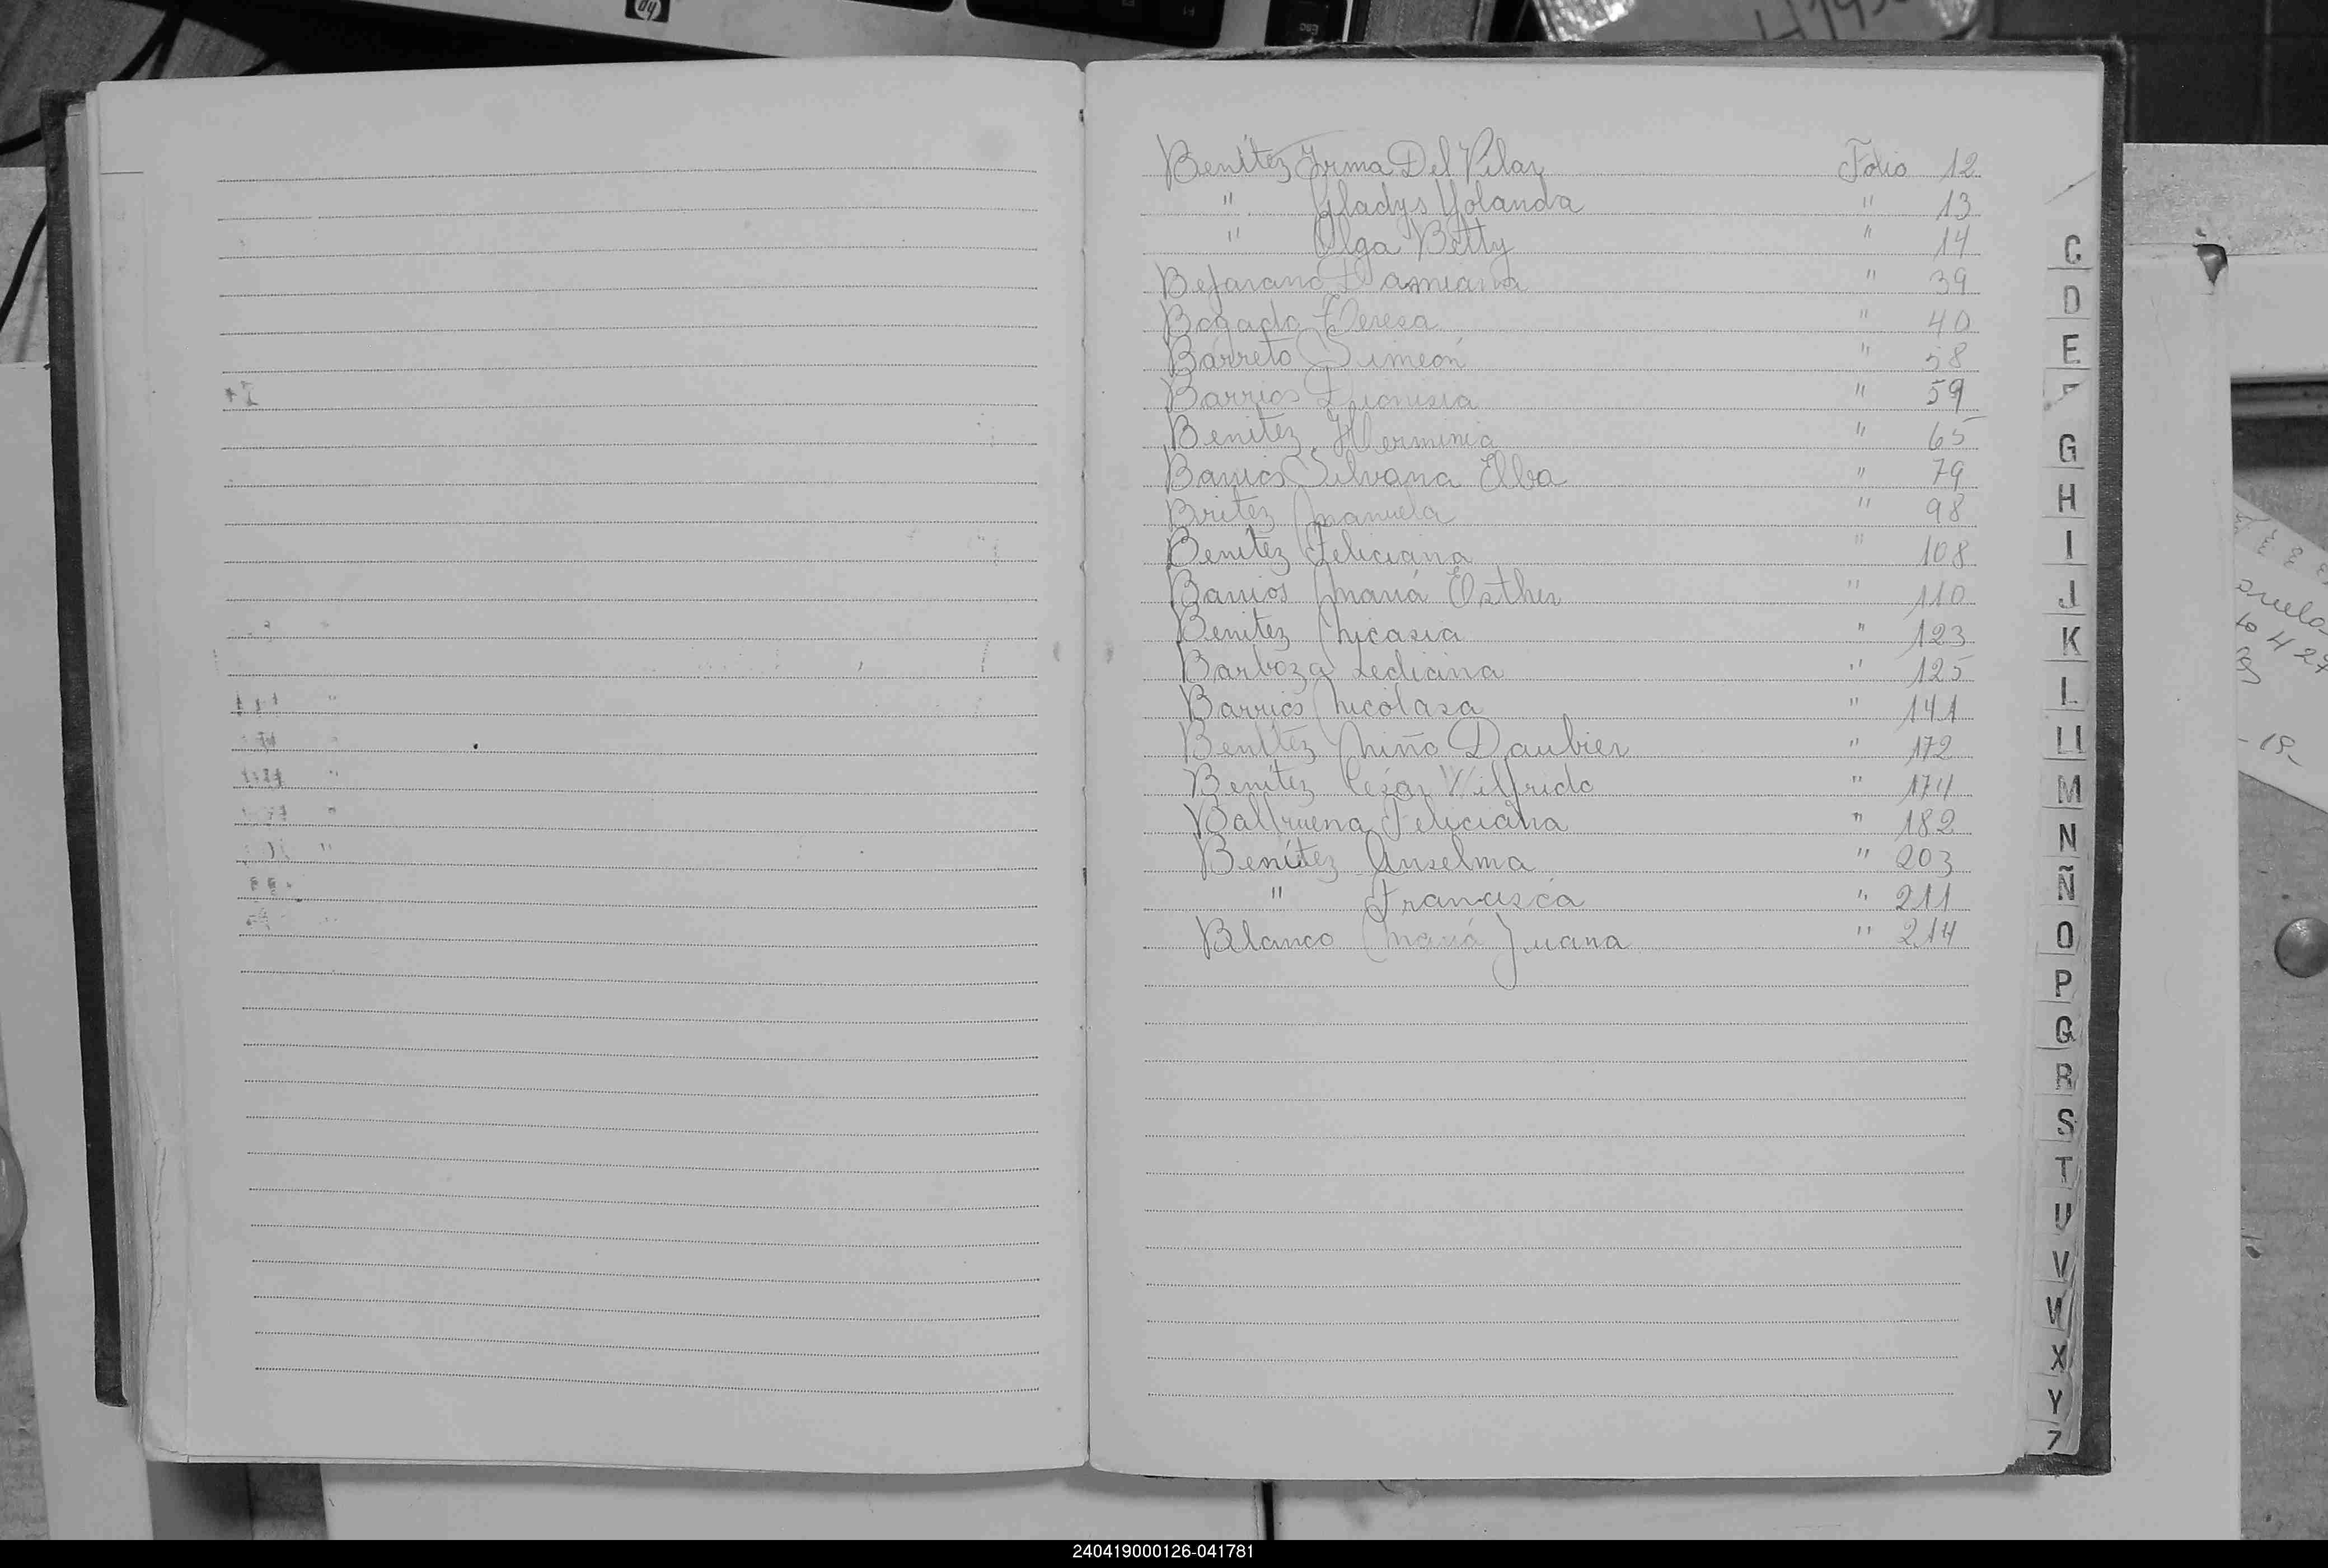 Benítez Irma Del Pilar Folio 12
" Gladys Yolanda " 13
" Olga Betty " 14
Bejarano Damiana " 39
Bogado Teresa " 40
Barreto Simeón " 58
Barrios Dionisia " 59
Benitez Herminia " 65
Barrios Silvana Elba " 79
Britez Manuela " 98
Benítez Feliciana " 108
Barrios María Esther " 110
Benitez Nicasia " 123
Barboza Lediana " 125
Barrios Nicolasa " 141
Benítez Niño Daubier " 172
Benítez César Wilfrido " 174
Balbuena Feliciana " 182
Benítez Anselma " 203
" Francisca " 211
Blanco María Juana " 214
C
D
E
F
G
H
I
J
K
L
LL
M
N
Ñ
O
P
Q
R
S
T
U
V
W
X
Y
Z
hp
240419000126-041781